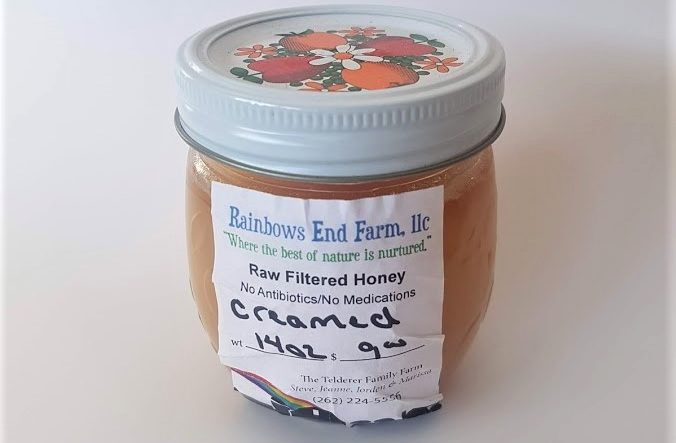 Rainbows End Farm, llc
"Where the best of nature is nurtured."
Raw Filtered Honey
No Antibiotics/No Medications
creamed
wt 14oz $ 9⁰⁰
The Telderer Family Farm
Steve, Jeanne, Jorden & Marissa
(262) 224-5556